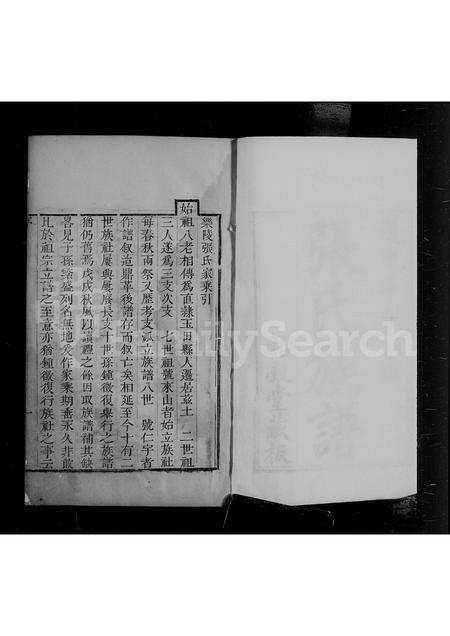 樂陵張氏家乘引
始祖八老相傳為直隸玉田縣人遷居茲土 二世祖
三人遂為三支次支 七世祖號來山者始立族社
每春秋兩祭又歷考支派立族譜八世 號仁宇者
作譜叙迨鼎革後譜存而叙亡矣相延至今十有二
世族社屢興屢廢長支十世孫鍾徵復舉行之族譜
猶仍舊焉戊戌秋風以讀禮之餘因取族譜補其缺
畧見子孫蕃盛列名無地爰作家乘期垂永久非敢
凡於祖宗立譜之至意亦猶鍾徵復行族社之事云
一
FamilySearch